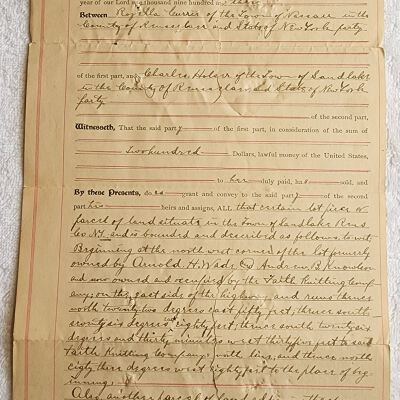 year of our Lord one thousand nine hundred and
Between Rozella Currier of the Town of Nassau in the
County of Rensselaer and State of New York party
of the first part, and Charles Holser of the Town of Sandlake
in the County of Rensselaer and State of New York
party
of the second part,
Witnesseth, That the said party of the first part, in consideration of the sum of
Two hundred Dollars, lawful money of the United States,
to her duly paid, has sold, and
By these Presents, does grant and convey to the said party of the second
part his heirs and assigns, ALL that certain lot piece or
parcel of land situate in the Town of Sandlake Rens
Co N.Y. and is bounded and described as follows, to wit,
Beginning at the north west corner of the lot formerly
owned by Arnold H. Wade & Andrew B. Knowlson
and now owned and occupied by the Faith Knitting Comp
any; on the east side of the highway and runs thence
north twenty two degrees east fifty feet; thence south
seventy six degrees eighty feet; thence south twenty six
degrees and thirty minutes west thirty five feet to said
Faith Knitting Companys north line, and thence north
eighty three degrees west eighty feet to the place of beg
inning.
Also another parcel of land